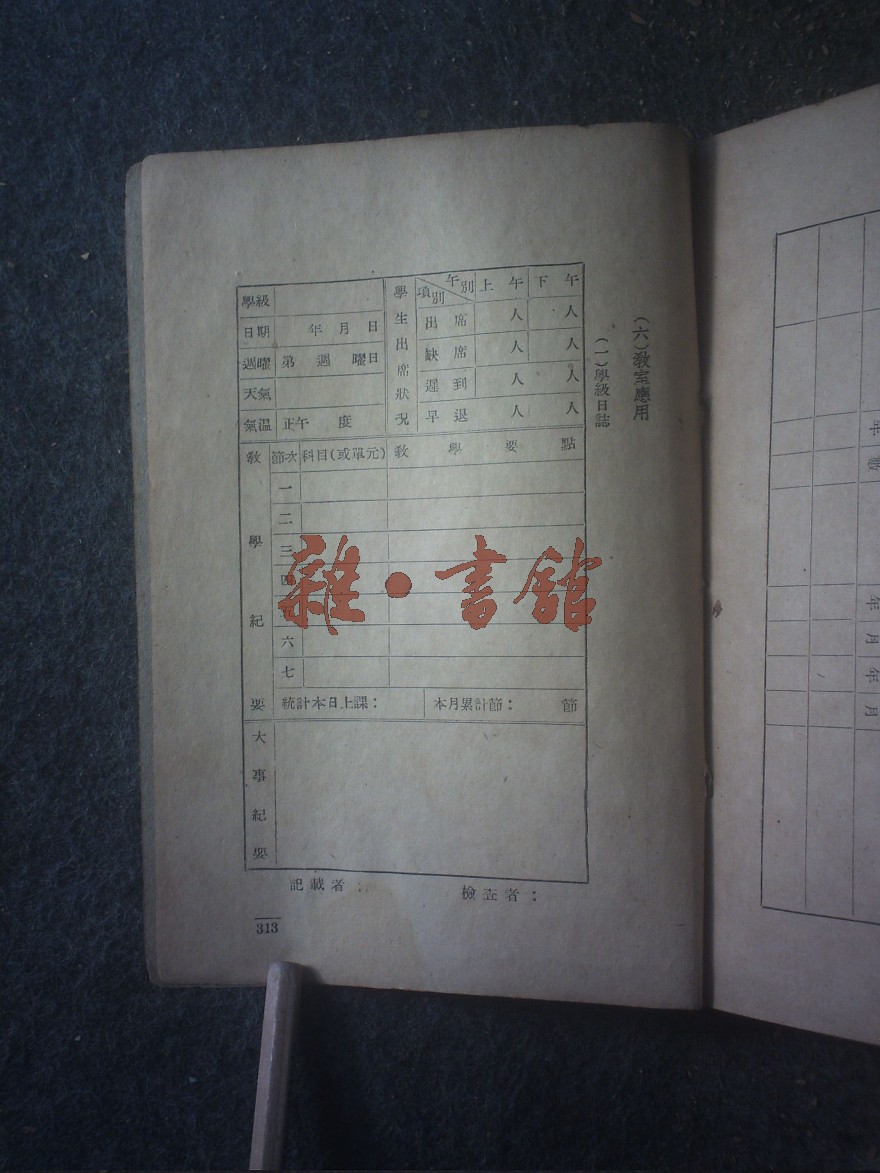 (六)教室應用
(一)學級日誌
學級
日期 年 月 日
週曜 第 週 曜日
天氣
氣温 正午 度
學生出席狀况
項別 午別 上午 下午
出席 人 人
缺席 人 人
遲到 人 人
早退 人 人
教學紀要
節次 科目(或單元) 教學要點
一
二
三
四
五
六
七
統計本日上課: 本月累計節: 節
大事紀要
記載者: 檢查者:
313
雜·書館
年
年月
年月